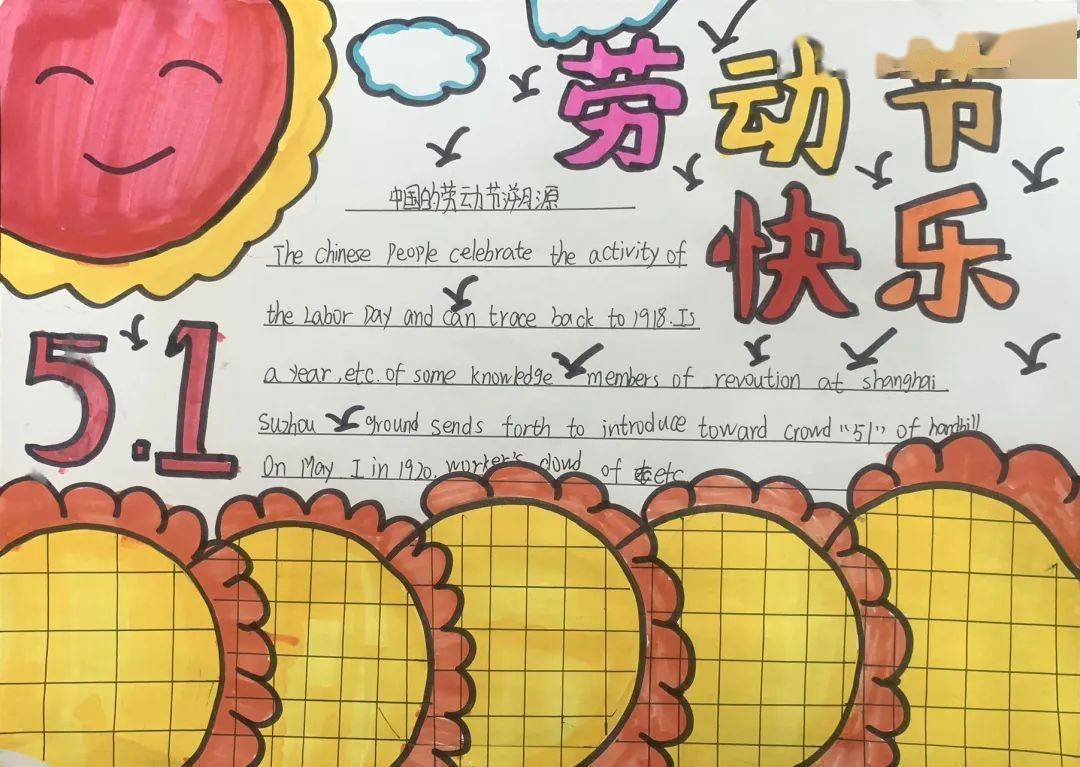 劳动节
快乐
中国的劳动节溯源
The chinese people celebrate the activity of
the Labor Day and can trace back to 1918. Is
a year, etc. of some knowledge members of revoution at shanghai
Suzhou ground sends forth to introduce toward crowd "51" of handbill
On May I in 1920. worker's cloud of etc
5.1